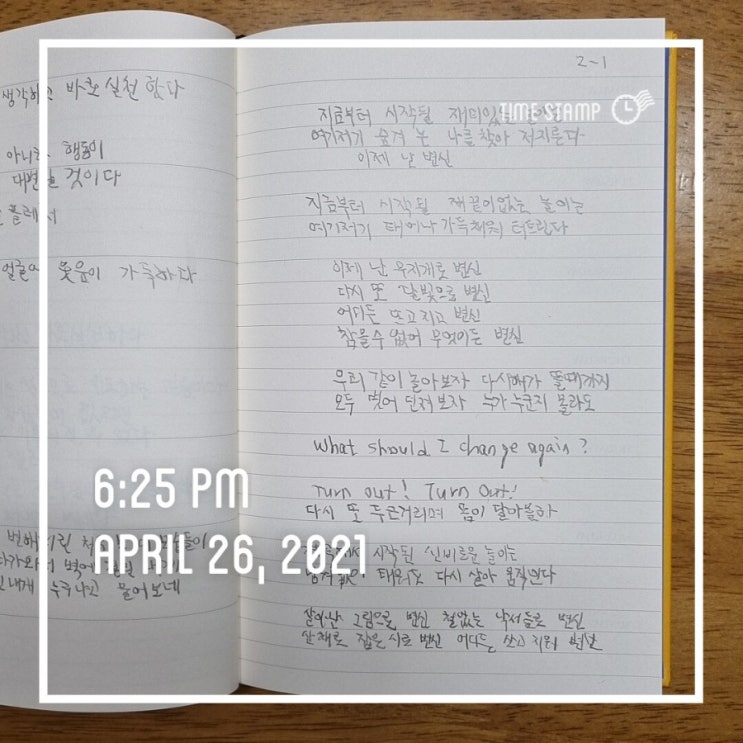 생각하고 바로 실천 한다
행동이
것이다
웃음이 가득하다
물어보네
2-1
지금부터 시작될
TIME STAMP
여기저기 숨겨 논 나를 찾아 저지른다
이제 난 변신
지금부터 시작될 끝이없는 놀이는
여기저기 태어나 가득채워 터트린다
이제 난 무지개로 변신
다시 또 달빛으로 변신
어디든 뜨고 지고 변신
참을수 없어 무엇이든 변신
우리 같이 놀아보자 다시해가 뜰때까지
모두 벗어 던져보자 누가 누군지 몰라도
What should I change again?
Turn out! Turn Out!
다시 또 두근거리며 몸이 달아올라
6:25 PM
APRIL 26, 2021
시작된 신비로운 놀이는
다시 살아 움직인다
살아난 그림으로 변신 철없는 낙서들로 변신
산채로 잡은 시로 변신 어디든 쓰고 지워 변신